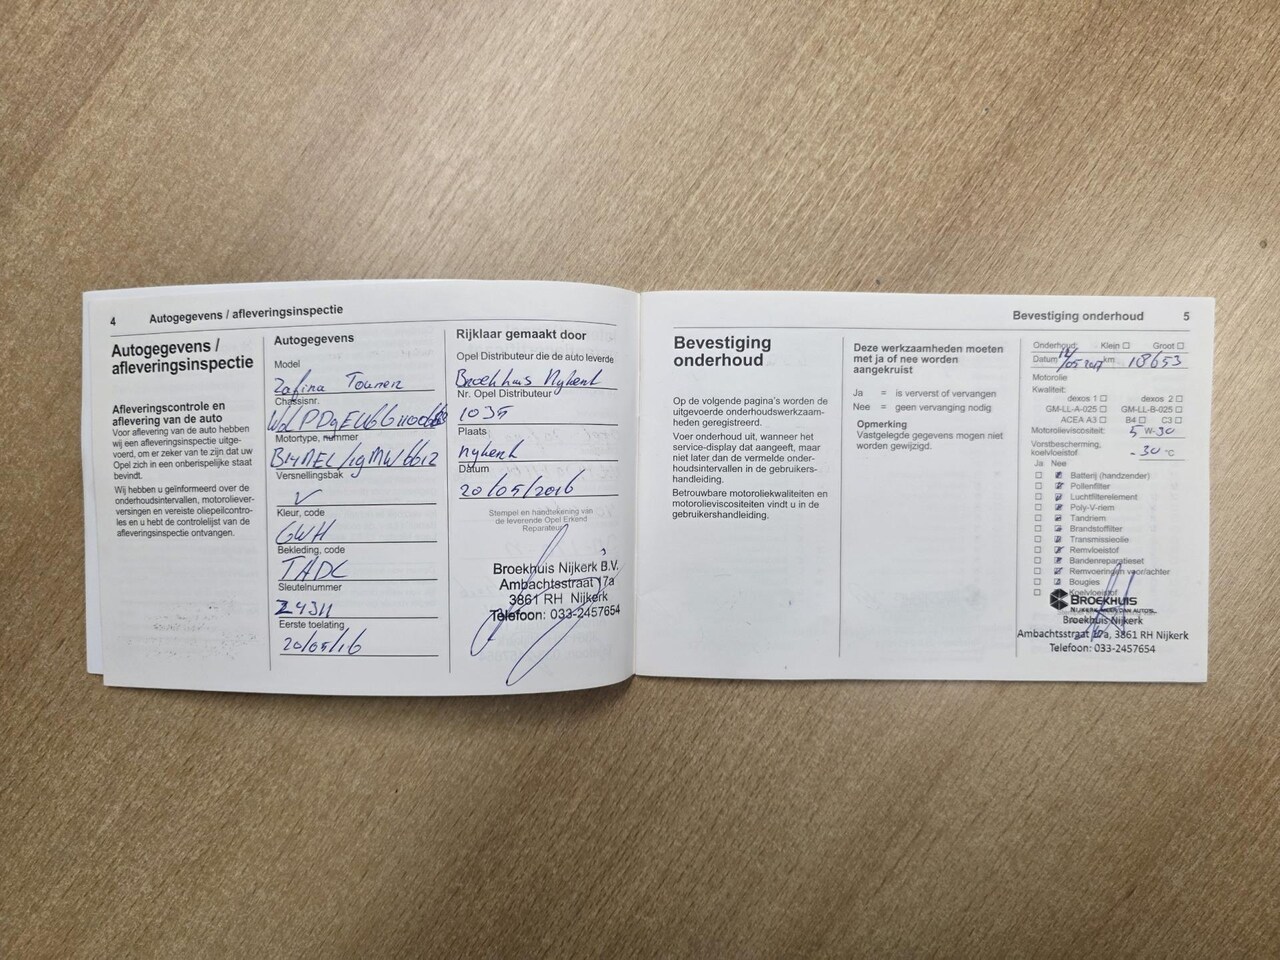 4 Autogegevens / afleveringsinspectie
Autogegevens /
afleveringsinspectie
Afleveringscontrole en
aflevering van de auto
Voor aflevering van de auto hebben
wij een afleveringsinspectie uitge-
voerd, om er zeker van te zijn dat uw
Opel zich in een onberispelijke staat
bevindt.
Wij hebben u geïnformeerd over de
onderhoudsintervallen, motoroliever-
versingen en vereiste oliepeilcontro-
les en u hebt de controlelijst van de
afleveringsinspectie ontvangen.
Autogegevens
Model
Zafira Tourer
Chassisnr.
Motortype, nummer
Versnellingsbak
V
Kleur, code
GWH
Bekleding, code
TADC
Sleutelnummer
Z4311
Eerste toelating
20/05/16
Rijklaar gemaakt door
Opel Distributeur die de auto leverde
Broekhuis Nykerk
Nr. Opel Distributeur
1035
Plaats
Nykerk
Datum
20/05/2016
Stempel en handtekening van
de leverende Opel Erkend
Reparateur
Broekhuis Nijkerk B.V.
Ambachtsstraat 17a
3861 RH Nijkerk
Telefoon: 033-2457654
Bevestiging onderhoud 5
Bevestiging
onderhoud
Op de volgende pagina's worden de
uitgevoerde onderhoudswerkzaam-
heden geregistreerd.
Voer onderhoud uit, wanneer het
service-display dat aangeeft, maar
niet later dan de vermelde onder-
houdsintervallen in de gebruikers-
handleiding.
Betrouwbare motoroliekwaliteiten en
motorolieviscositeiten vindt u in de
gebruikershandleiding.
Deze werkzaamheden moeten
met ja of nee worden
aangekruist
Ja = is ververst of vervangen
Nee = geen vervanging nodig
Opmerking
Vastgelegde gegevens mogen niet
worden gewijzigd.
Onderhoud: Klein Groot
Datum km 18653
Motorolie
Kwaliteit:
dexos 1 dexos 2
GM-LL-A-025 GM-LL-B-025
ACEA A3 B4 C3
Motorolieviscositeit: 5 W-30
Vorstbescherming,
koelvloeistof -30 °C
Ja Nee
Batterij (handzender)
Pollenfilter
Luchtfilterelement
Poly-V-riem
Tandriem
Brandstoffilter
Transmissieolie
Remvloeistof
Bandenreparatieset
Remvoeringen voor/achter
Bougies
Koelvloeistof
BROEKHUIS
Broekhuis Nijkerk
Ambachtsstraat 17a, 3861 RH Nijkerk
Telefoon: 033-2457654